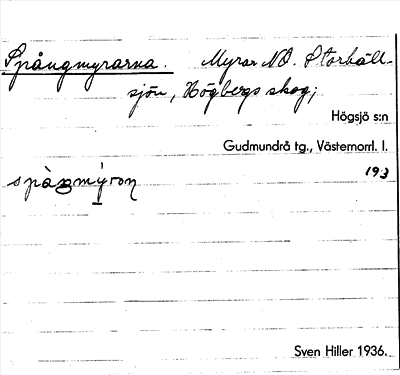 Spångmyrarna. Myrar NO. Storhäll-
sjön, Högbergs skog;
Högsjö s:n
Gudmundrå tg., Västernorrl. l.
193
Sven Hiller 1936.